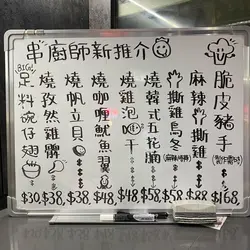 串廚師新推介
脆皮豬手
(製作需時)
$168
麻辣手撕雞
$88
手撕雞烏冬
(麻辣/椒麻)
$58
燒韓式五花腩
$58
燒雞泡干
$48
燒咖喱魷魚翼
$48
燒帆立貝
$38
燒孜然雞髀
$38
BIG!
足料碗仔翅
$30